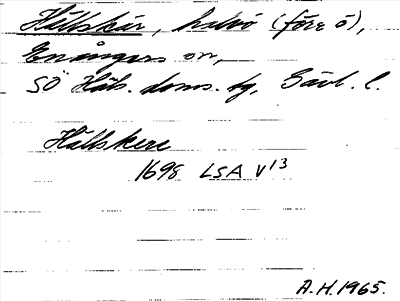 Hällskär, halvö (före ö),
Enångers sn,
SÖ Häls. doms. tg, Gävl. l.
Hällskere
1698 LSA V13
A.H. 1965.